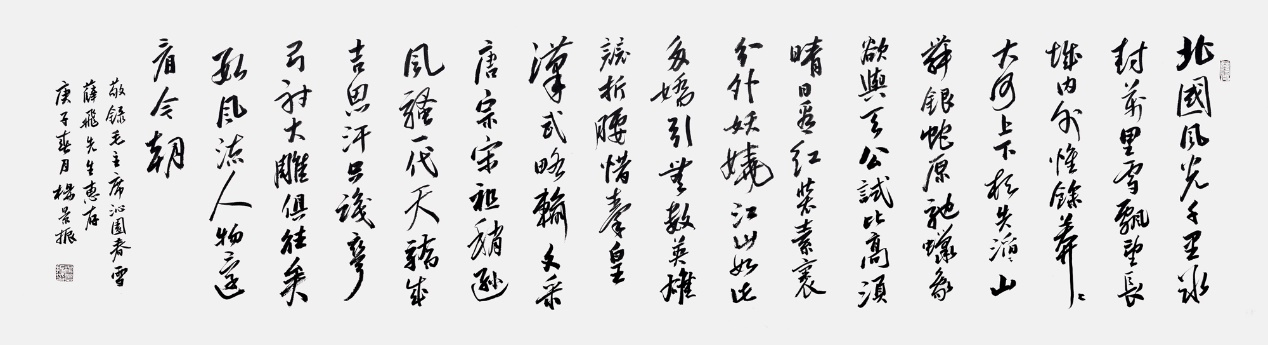 北國風光千里冰
封萬里雪飄望長
城內外惟餘莽〻
大河上下頓失滔〻山
舞銀蛇原馳蠟象
欲與天公試比高須
晴日看紅裝素裹
分外妖嬈江山如此
多嬌引無數英雄
競折腰惜秦皇
漢武略輸文采
唐宗宋祖稍遜
風騷一代天驕成
吉思汗只識彎
弓射大雕俱往矣
數風流人物還
看今朝
敬錄毛主席沁園春雪
薛飛先生惠存
庚子春月楊景振